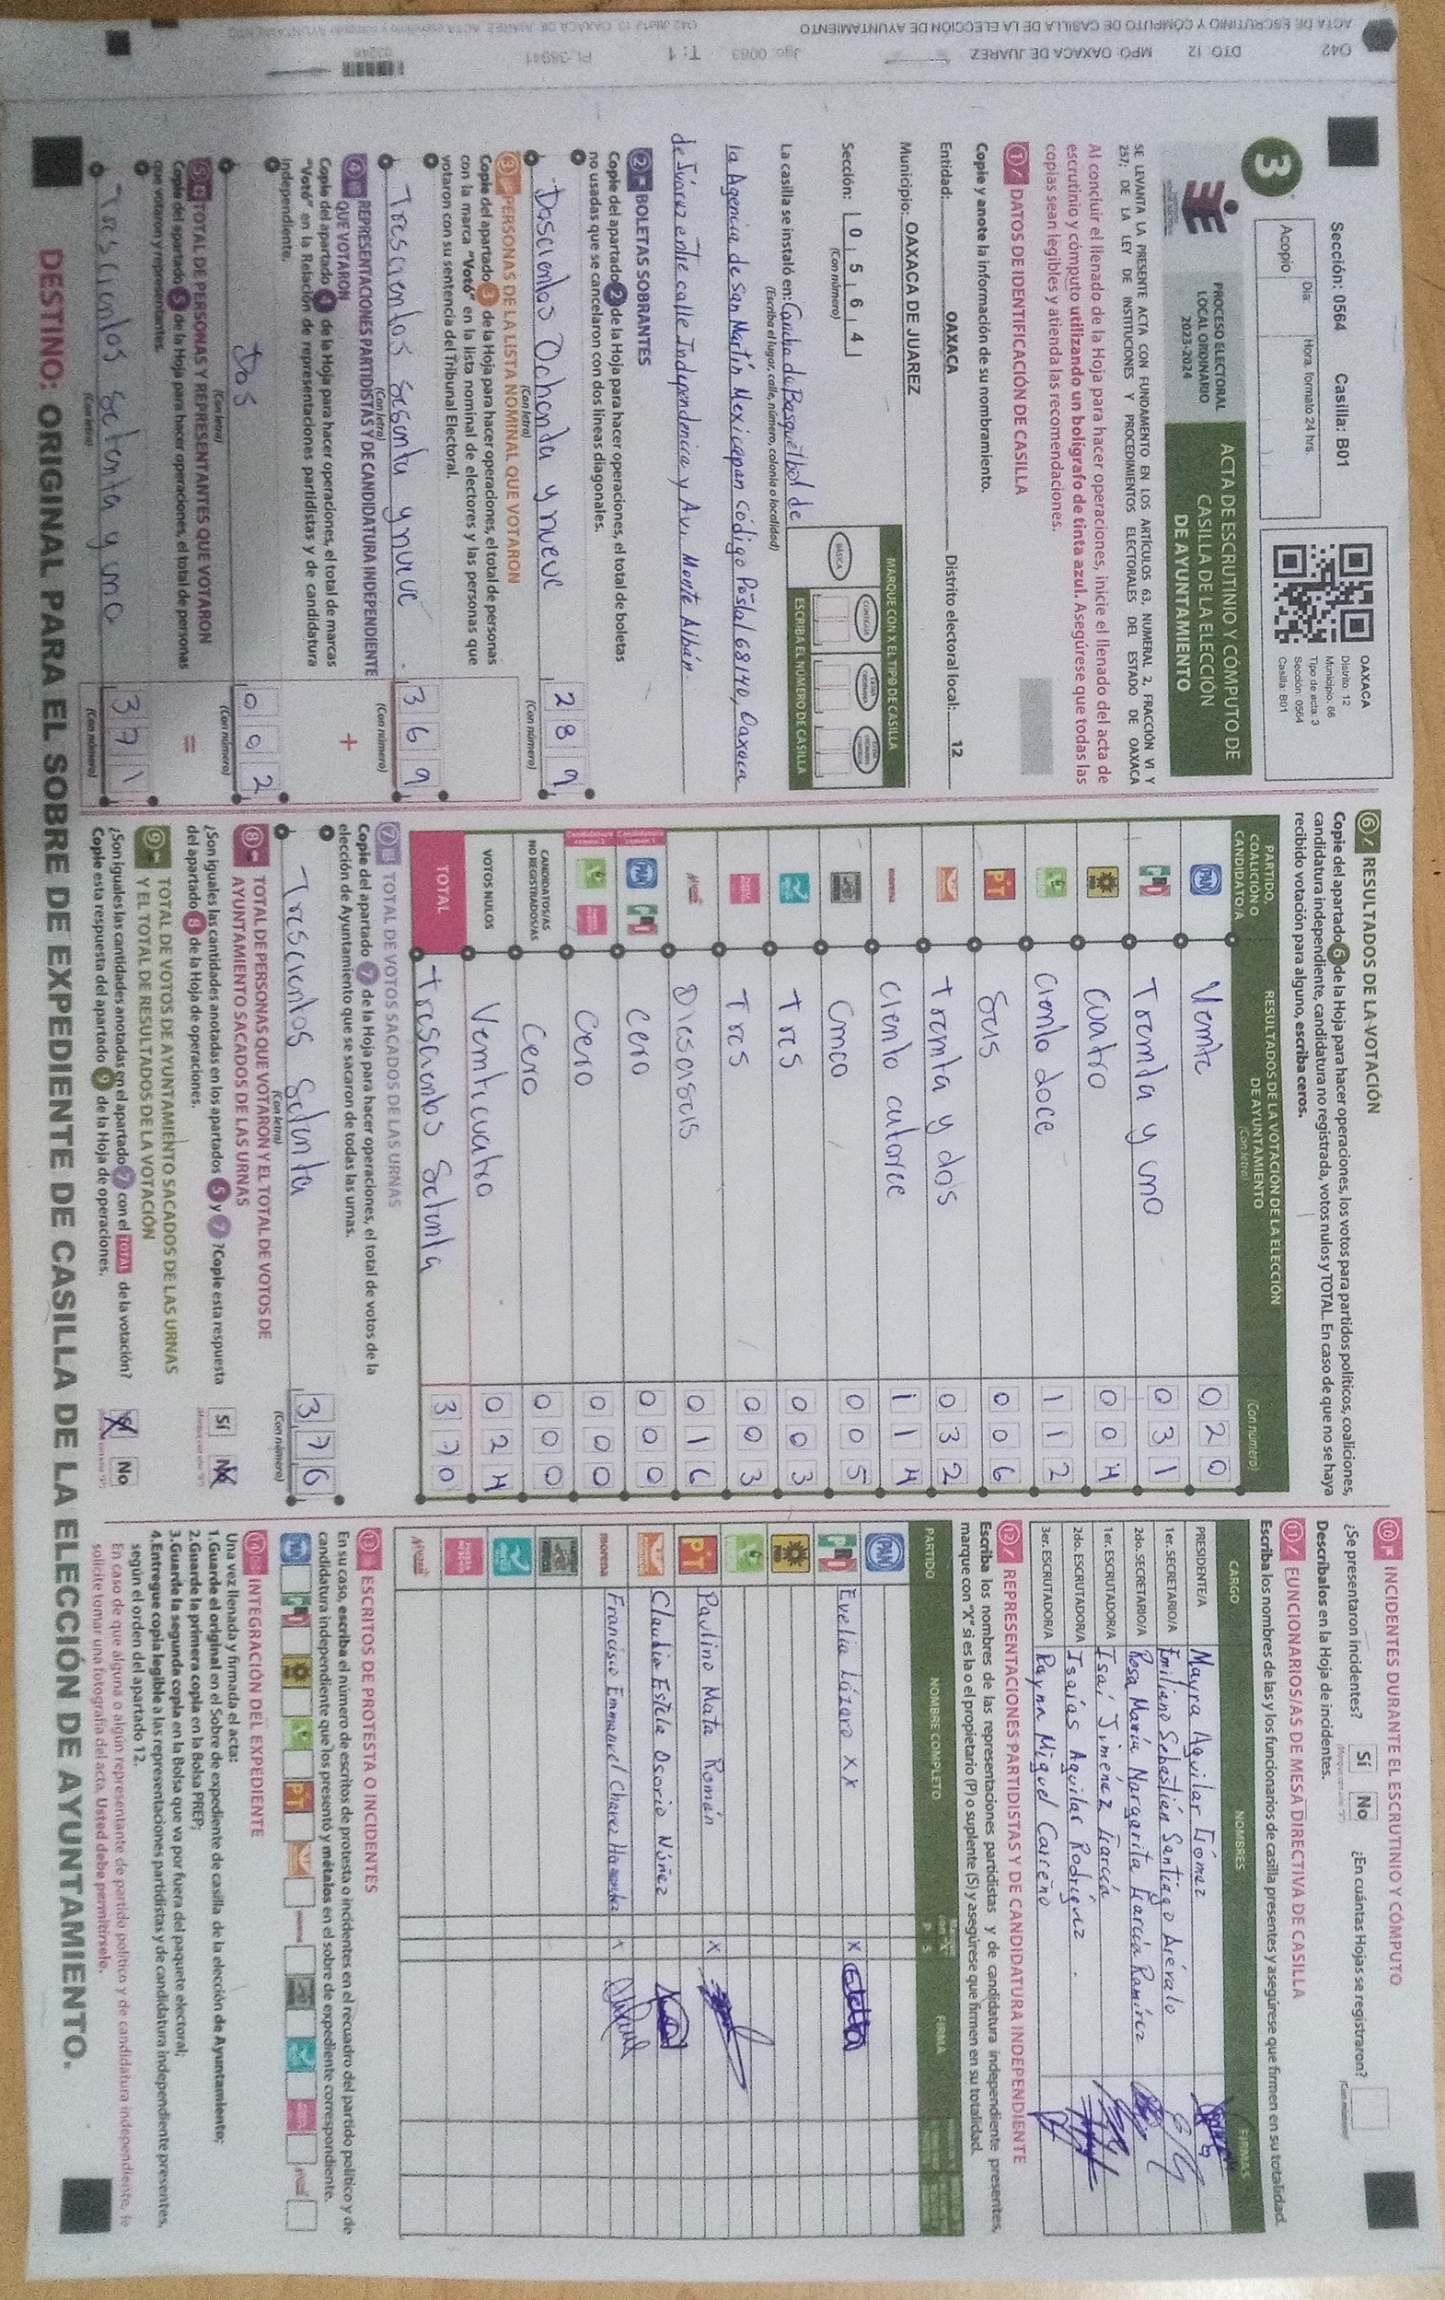 Sección: 0564 Casilla: B01
3
Acopio
Día:
Hora: formato 24 hrs.
OAXACA
Distrito: 12
Municipio: 66
Tipo de acta: 3
Sección: 0564
Casilla: B01
PROCESO ELECTORAL
LOCAL ORDINARIO
2023-2024
ACTA DE ESCRUTINIO Y CÓMPUTO DE
CASILLA DE LA ELECCIÓN
DE AYUNTAMIENTO
SE LEVANTA LA PRESENTE ACTA CON FUNDAMENTO EN LOS ARTÍCULOS 63, NUMERAL 2, FRACCIÓN VI Y
257; DE LA LEY DE INSTITUCIONES Y PROCEDIMIENTOS ELECTORALES DEL ESTADO DE OAXACA
Al concluir el llenado de la Hoja para hacer operaciones, inicie el llenado del acta de
escrutinio y cómputo utilizando un bolígrafo de tinta azul. Asegúrese que todas las
copias sean legibles y atienda las recomendaciones.
1 DATOS DE IDENTIFICACIÓN DE CASILLA
Copie y anote la información de su nombramiento.
Entidad: OAXACA Distrito electoral local: 12
Municipio: OAXACA DE JUAREZ
Sección: 0 5 6 4
(Con número)
MARQUE CON X EL TIPO DE CASILLA
BÁSICA
CONTIGUA
ESCRIBA EL NÚMERO DE CASILLA
La casilla se instaló en: Cancha de Basquetbol de
(Escriba el lugar, calle, número, colonia o localidad)
la Agencia de San Martín Mexicapan código Postal 68140, Oaxaca
de Juárez entre calle Independencia y Av. Monte Albán.
2 BOLETAS SOBRANTES
Copie del apartado 2 de la Hoja para hacer operaciones, el total de boletas
no usadas que se cancelaron con dos líneas diagonales.
Doscientos Ochenta y nueve 2 8 9
(Con letra) (Con número)
3 PERSONAS DE LA LISTA NOMINAL QUE VOTARON
Copie del apartado 3 de la Hoja para hacer operaciones, el total de personas
con la marca "Votó" en la lista nominal de electores y las personas que
votaron con su sentencia del Tribunal Electoral.
Trescientos sesenta y nueve 3 6 9
(Con letra) (Con número)
4 REPRESENTACIONES PARTIDISTAS Y DE CANDIDATURA INDEPENDIENTE
QUE VOTARON
Copie del apartado 4 de la Hoja para hacer operaciones, el total de marcas
"Votó" en la Relación de representaciones partidistas y de candidatura
independiente.
+
Dos 0 0 2
(Con letra) (Con número)
5 TOTAL DE PERSONAS Y REPRESENTANTES QUE VOTARON
Copie del apartado 5 de la Hoja para hacer operaciones, el total de personas
que votaron y representantes.
=
Trescientos setenta y uno 3 7 1
(Con letra) (Con número)
6 RESULTADOS DE LA VOTACIÓN
Copie del apartado 6 de la Hoja para hacer operaciones, los votos para partidos políticos, coaliciones,
candidatura independiente, candidatura no registrada, votos nulos y TOTAL. En caso de que no se haya
recibido votación para alguno, escriba ceros.
PARTIDO,
COALICIÓN O
CANDIDATO/A
RESULTADOS DE LA VOTACIÓN DE LA ELECCIÓN
DE AYUNTAMIENTO
(Con letra)
(Con número)
PAN Veinte 0 2 0
PRI Treinta y uno 0 3 1
cuatro 0 0 4
Ciento doce 1 1 2
PT Seis 0 0 6
Treinta y dos 0 3 2
morena Ciento catorce 1 1 4
Cinco 0 0 5
Tres 0 0 3
Tres 0 0 3
Dieciseis 0 1 6
PAN PRI cero 0 0 0
cero 0 0 0
CANDIDATOS/AS
NO REGISTRADOS/AS
Cero 0 0 0
VOTOS NULOS Veinticuatro 0 2 4
TOTAL trescientos setenta 3 7 0
7 TOTAL DE VOTOS SACADOS DE LAS URNAS
Copie del apartado 7 de la Hoja para hacer operaciones, el total de votos de la
elección de Ayuntamiento que se sacaron de todas las urnas.
Trescientos Setenta 3 7 0
(Con letra) (Con número)
8 TOTAL DE PERSONAS QUE VOTARON Y EL TOTAL DE VOTOS DE
AYUNTAMIENTO SACADOS DE LAS URNAS
¿Son iguales las cantidades anotadas en los apartados 5 y 7? Copie esta respuesta
del apartado 8 de la Hoja de operaciones.
Sí No
9 TOTAL DE VOTOS DE AYUNTAMIENTO SACADOS DE LAS URNAS
Y EL TOTAL DE RESULTADOS DE LA VOTACIÓN
¿Son iguales las cantidades anotadas en el apartado 7 con el TOTAL de la votación?
Copie esta respuesta del apartado 9 de la Hoja de operaciones.
Sí No
10 INCIDENTES DURANTE EL ESCRUTINIO Y CÓMPUTO
¿Se presentaron incidentes? Sí No ¿En cuántas Hojas se registraron?
(Con número)
Descríbalos en la Hoja de incidentes.
11 FUNCIONARIOS/AS DE MESA DIRECTIVA DE CASILLA
Escriba los nombres de las y los funcionarios de casilla presentes y asegúrese que firmen en su totalidad.
CARGO NOMBRES FIRMAS
PRESIDENTE/A Mayra Aguilar Gómez
1er. SECRETARIO/A Emiliano Sebastián Santiago Arévalo
2do. SECRETARIO/A Rosa María Margarita García Ramírez
1er. ESCRUTADOR/A Isaí Jiménez García
2do. ESCRUTADOR/A Isaías Aguilar Rodríguez.
3er. ESCRUTADOR/A Rayna Miguel Carreño
12 REPRESENTACIONES PARTIDISTAS Y DE CANDIDATURA INDEPENDIENTE
Escriba los nombres de las representaciones partidistas y de candidatura independiente presentes,
marque con "X" si es la o el propietario (P) o suplente (S) y asegúrese que firmen en su totalidad.
PARTIDO NOMBRE COMPLETO P S FIRMA
PAN
PRI Evelia Lázaro XX X
PT Paulino Mata Román X
Claudia Estela Osorio Núñez
morena Francisco Emmanuel Chavez X
13 ESCRITOS DE PROTESTA O INCIDENTES
En su caso, escriba el número de escritos de protesta o incidentes en el recuadro del partido político y de
candidatura independiente que los presentó y métalos en el sobre de expediente correspondiente.
14 INTEGRACIÓN DEL EXPEDIENTE
Una vez llenada y firmada el acta:
1. Guarde el original en el Sobre de expediente de casilla de la elección de Ayuntamiento;
2. Guarde la primera copia en la Bolsa PREP;
3. Guarde la segunda copia en la Bolsa que va por fuera del paquete electoral;
4. Entregue copia legible a las representaciones partidistas y de candidatura independiente presentes,
según el orden del apartado 12.
En caso de que alguna o algún representante de partido político y de candidatura independiente, le
solicite tomar una fotografía del acta, Usted debe permitírselo.
DESTINO: ORIGINAL PARA EL SOBRE DE EXPEDIENTE DE CASILLA DE LA ELECCIÓN DE AYUNTAMIENTO.
O42 DTO. 12 MPO: OAXACA DE JUAREZ Jgo. 0083 T: 1
ACTA DE ESCRUTINIO Y CÓMPUTO DE CASILLA DE LA ELECCIÓN DE AYUNTAMIENTO